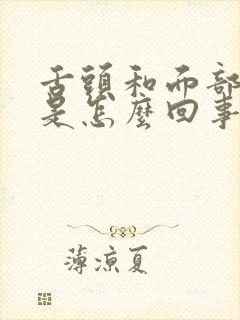 舌頭和而部
是怎麼回事
薄涼夏